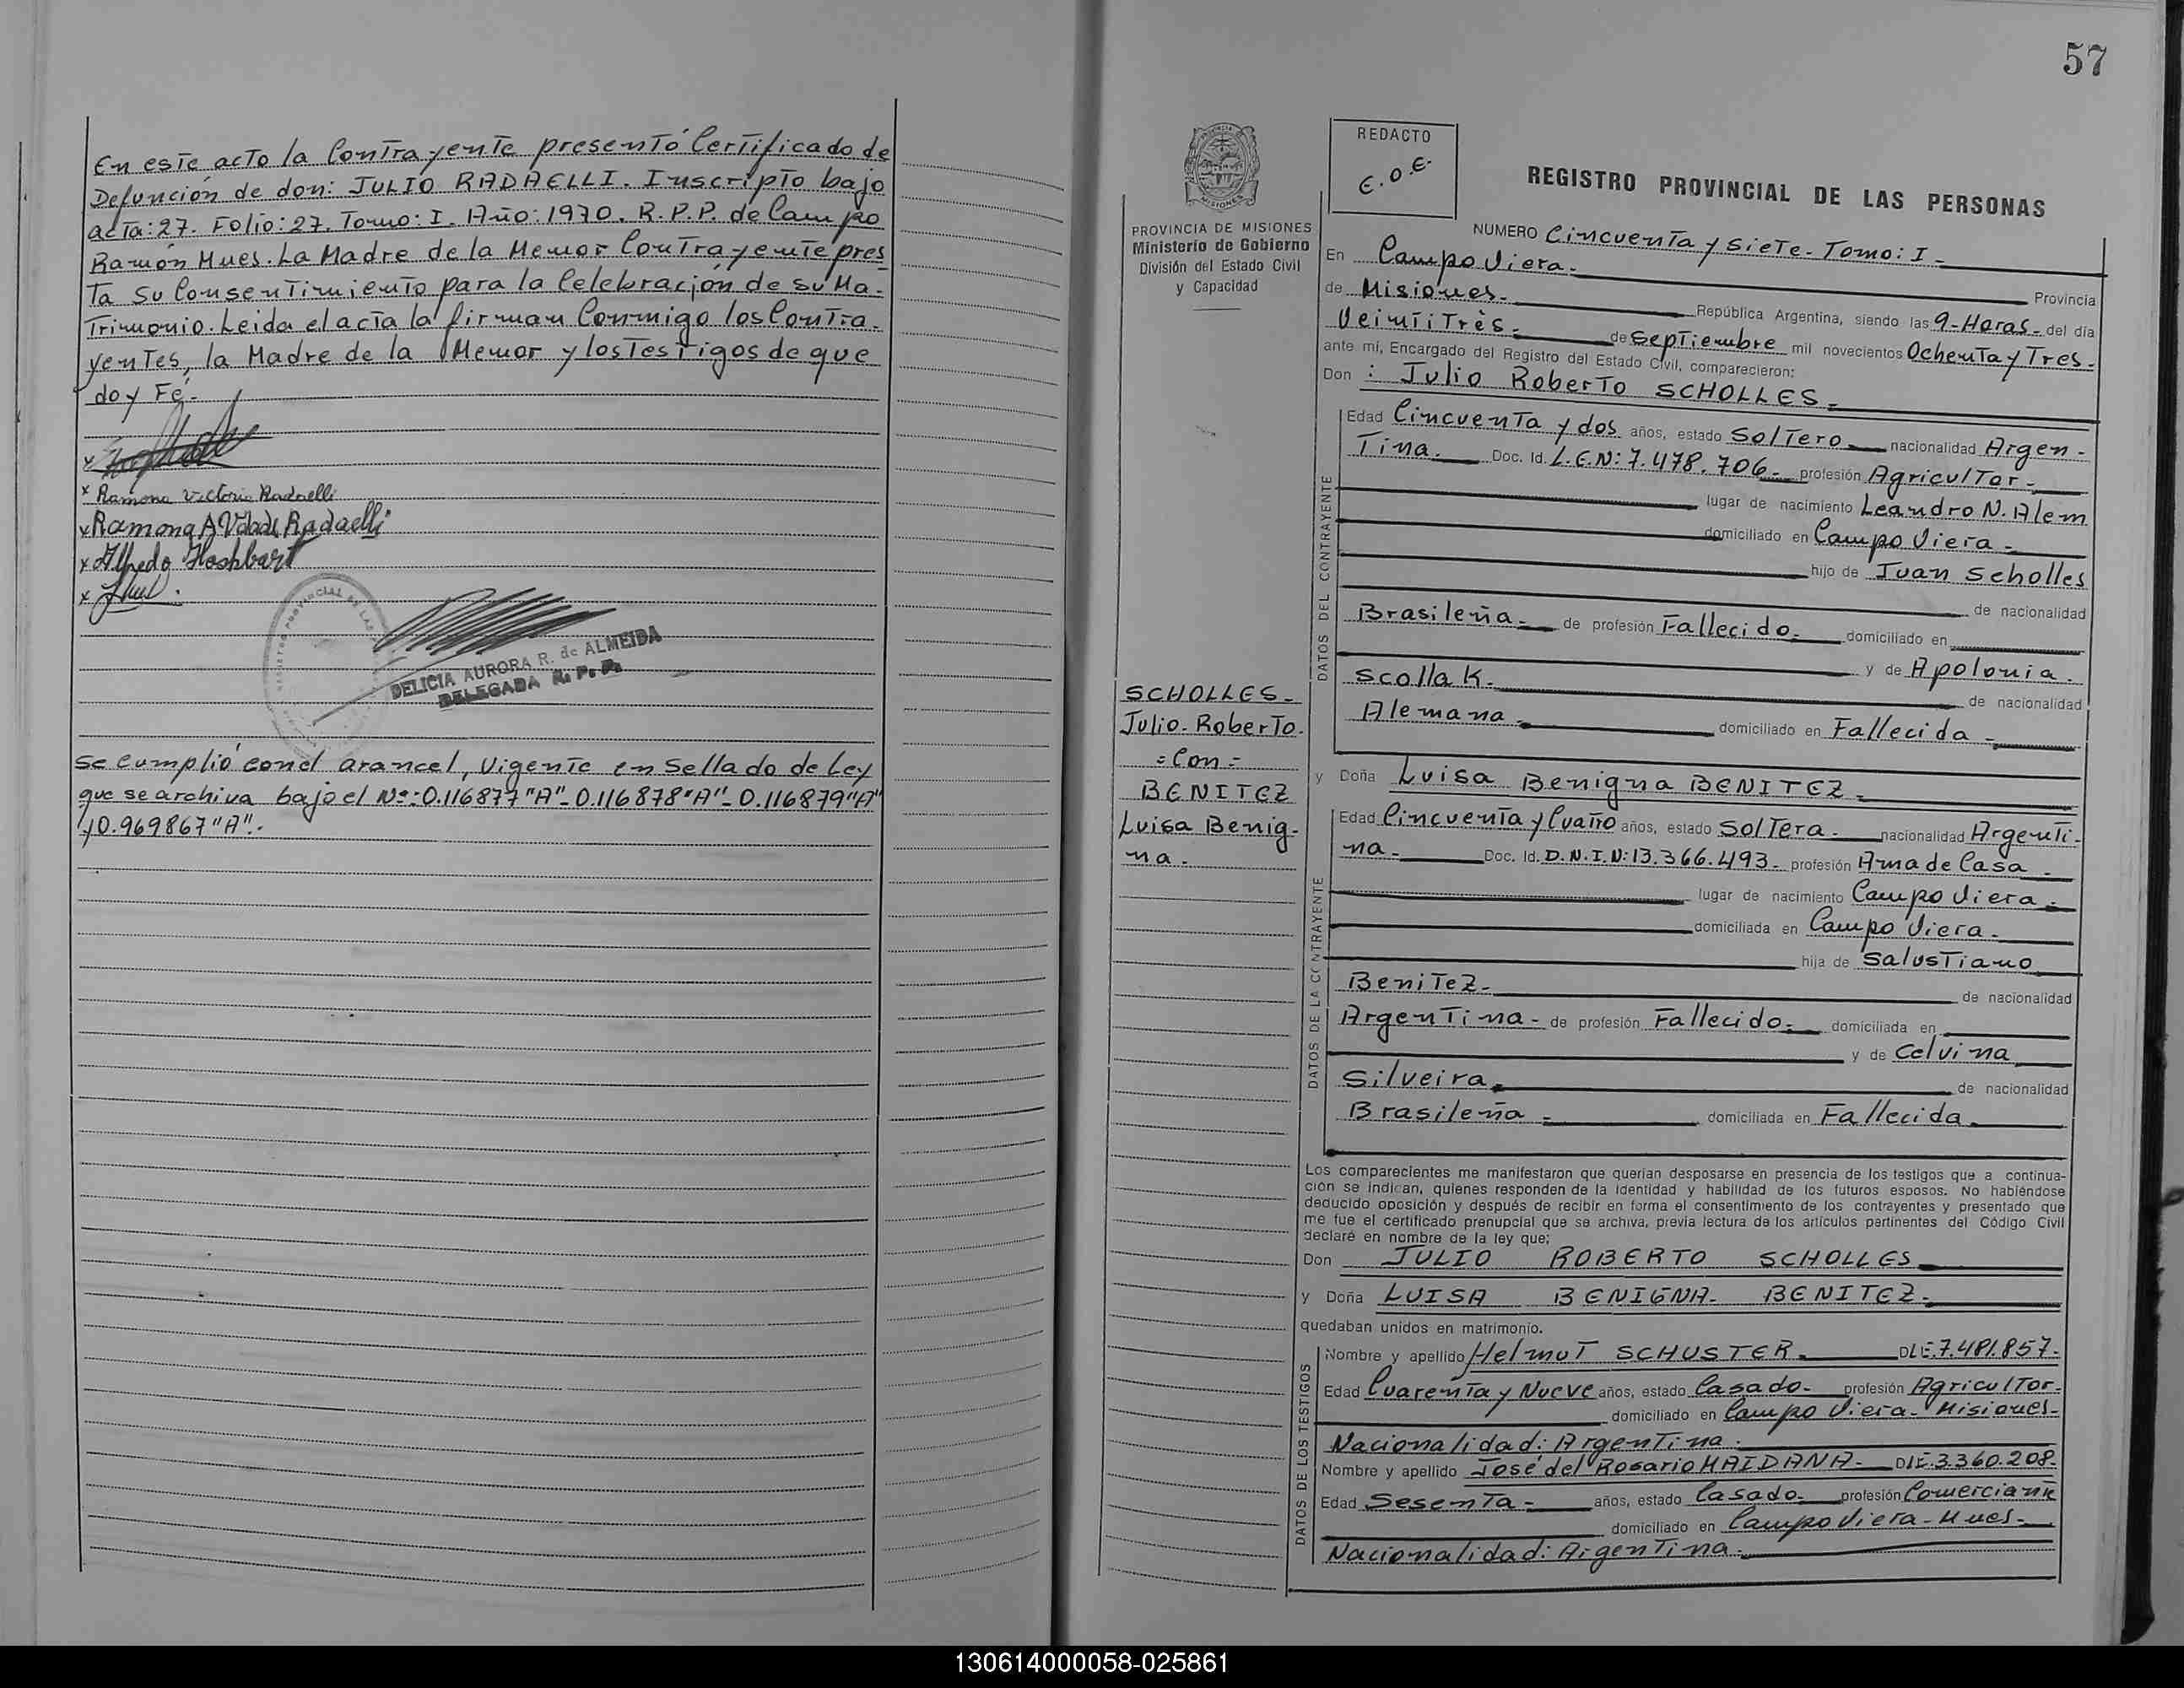 En este acto la Contrayente presentó Certificado de
Defunción de don: JULIO RADAELLI. Inscripto bajo
acta: 27. Folio: 27. Tomo: I. Año: 1970. R.P.P. de Campo
Ramón Mnes. La Madre de la Menor Contrayente pres
ta su Consentimiento para la Celebración de su Ma-
trimonio. Leida el acta la firman Conmigo los Contra-
yentes, la Madre de la Menor y los Testigos de que
doy Fé.-
x
x Ramona Victoria Radaelli
x Ramona A V de Radaelli
x Alfredo
x
DELICIA AURORA R. de ALMEIDA
DELEGADA R. P. P.
Se cumplió con el arancel, Vigente en Sellado de Ley
que se archiva bajo el Nº: 0.116877 "A"- 0.116878 "A"- 0.116879 "A"
y 0.969867 "A".-
57
PROVINCIA DE MISIONES
Ministerio de Gobierno
División del Estado Civil
y Capacidad
SCHOLLES-
Julio-Roberto.
=Con=
BENITEZ
Luisa Benig-
na-
REDACTO
E.O.E.
REGISTRO PROVINCIAL DE LAS PERSONAS
NUMERO Cincuenta y Siete- Tomo: I-
En Campo Viera- Provincia
de Misiones- República Argentina, siendo las 9-Horas- del día
Veintitrès- de Septiembre mil novecientos Ochenta y Tres-
ante mí, Encargado del Registro del Estado Civil, comparecieron:
Don : Julio Roberto SCHOLLES-
DATOS DEL CONTRAYENTE
Edad Cincuenta y dos años, estado Soltero- nacionalidad Argen-
tina- Doc. Id. L.E.N: 7.478.706- profesión Agricultor-
lugar de nacimiento Leandro N. Alem
domiciliado en Campo Viera-
hijo de Juan Scholles
de nacionalidad
Brasileña- de profesión Fallecido- domiciliado en
y de Apolonia-
Scollak- de nacionalidad
Alemana- domiciliado en Fallecida-
y Doña Luisa Benigna BENITEZ-
DATOS DE LA CONTRAYENTE
Edad Cincuenta y Cuatro años, estado Soltera- nacionalidad Argenti-
na- Doc. Id. D.N.I.N: 13.366.493- profesión Ama de Casa-
lugar de nacimiento Campo Viera-
domiciliada en Campo Viera-
hija de Salustiano
Benitez- de nacionalidad
Argentina- de profesión Fallecido- domiciliada en
y de Celvina
Silveira- de nacionalidad
Brasileña- domiciliada en Fallecida-
Los comparecientes me manifestaron que querían desposarse en presencia de los testigos que a continua-
ción se indican, quienes responden de la identidad y habilidad de los futuros esposos. No habiéndose
deducido oposición y después de recibir en forma el consentimiento de los contrayentes y presentado que
me fue el certificado prenupcial que se archiva, previa lectura de los artículos pertinentes del Código Civil
declaré en nombre de la ley que;
Don JULIO ROBERTO SCHOLLES-
y Doña LUISA BENIGNA- BENITEZ-
quedaban unidos en matrimonio.
DATOS DE LOS TESTIGOS
Nombre y apellido Helmut SCHUSTER- DLE.7.481.857-
Edad Cuarenta y Nueve años, estado Casado- profesión Agricultor-
domiciliado en Campo Viera- Misiones-
Nacionalidad: Argentina-
Nombre y apellido José del Rosario MAIDANA- DLE.3.360.208
Edad Sesenta- años, estado Casado- profesión Comerciante
domiciliado en Campo Viera- Mnes-
Nacionalidad: Argentina-
130614000058-025861